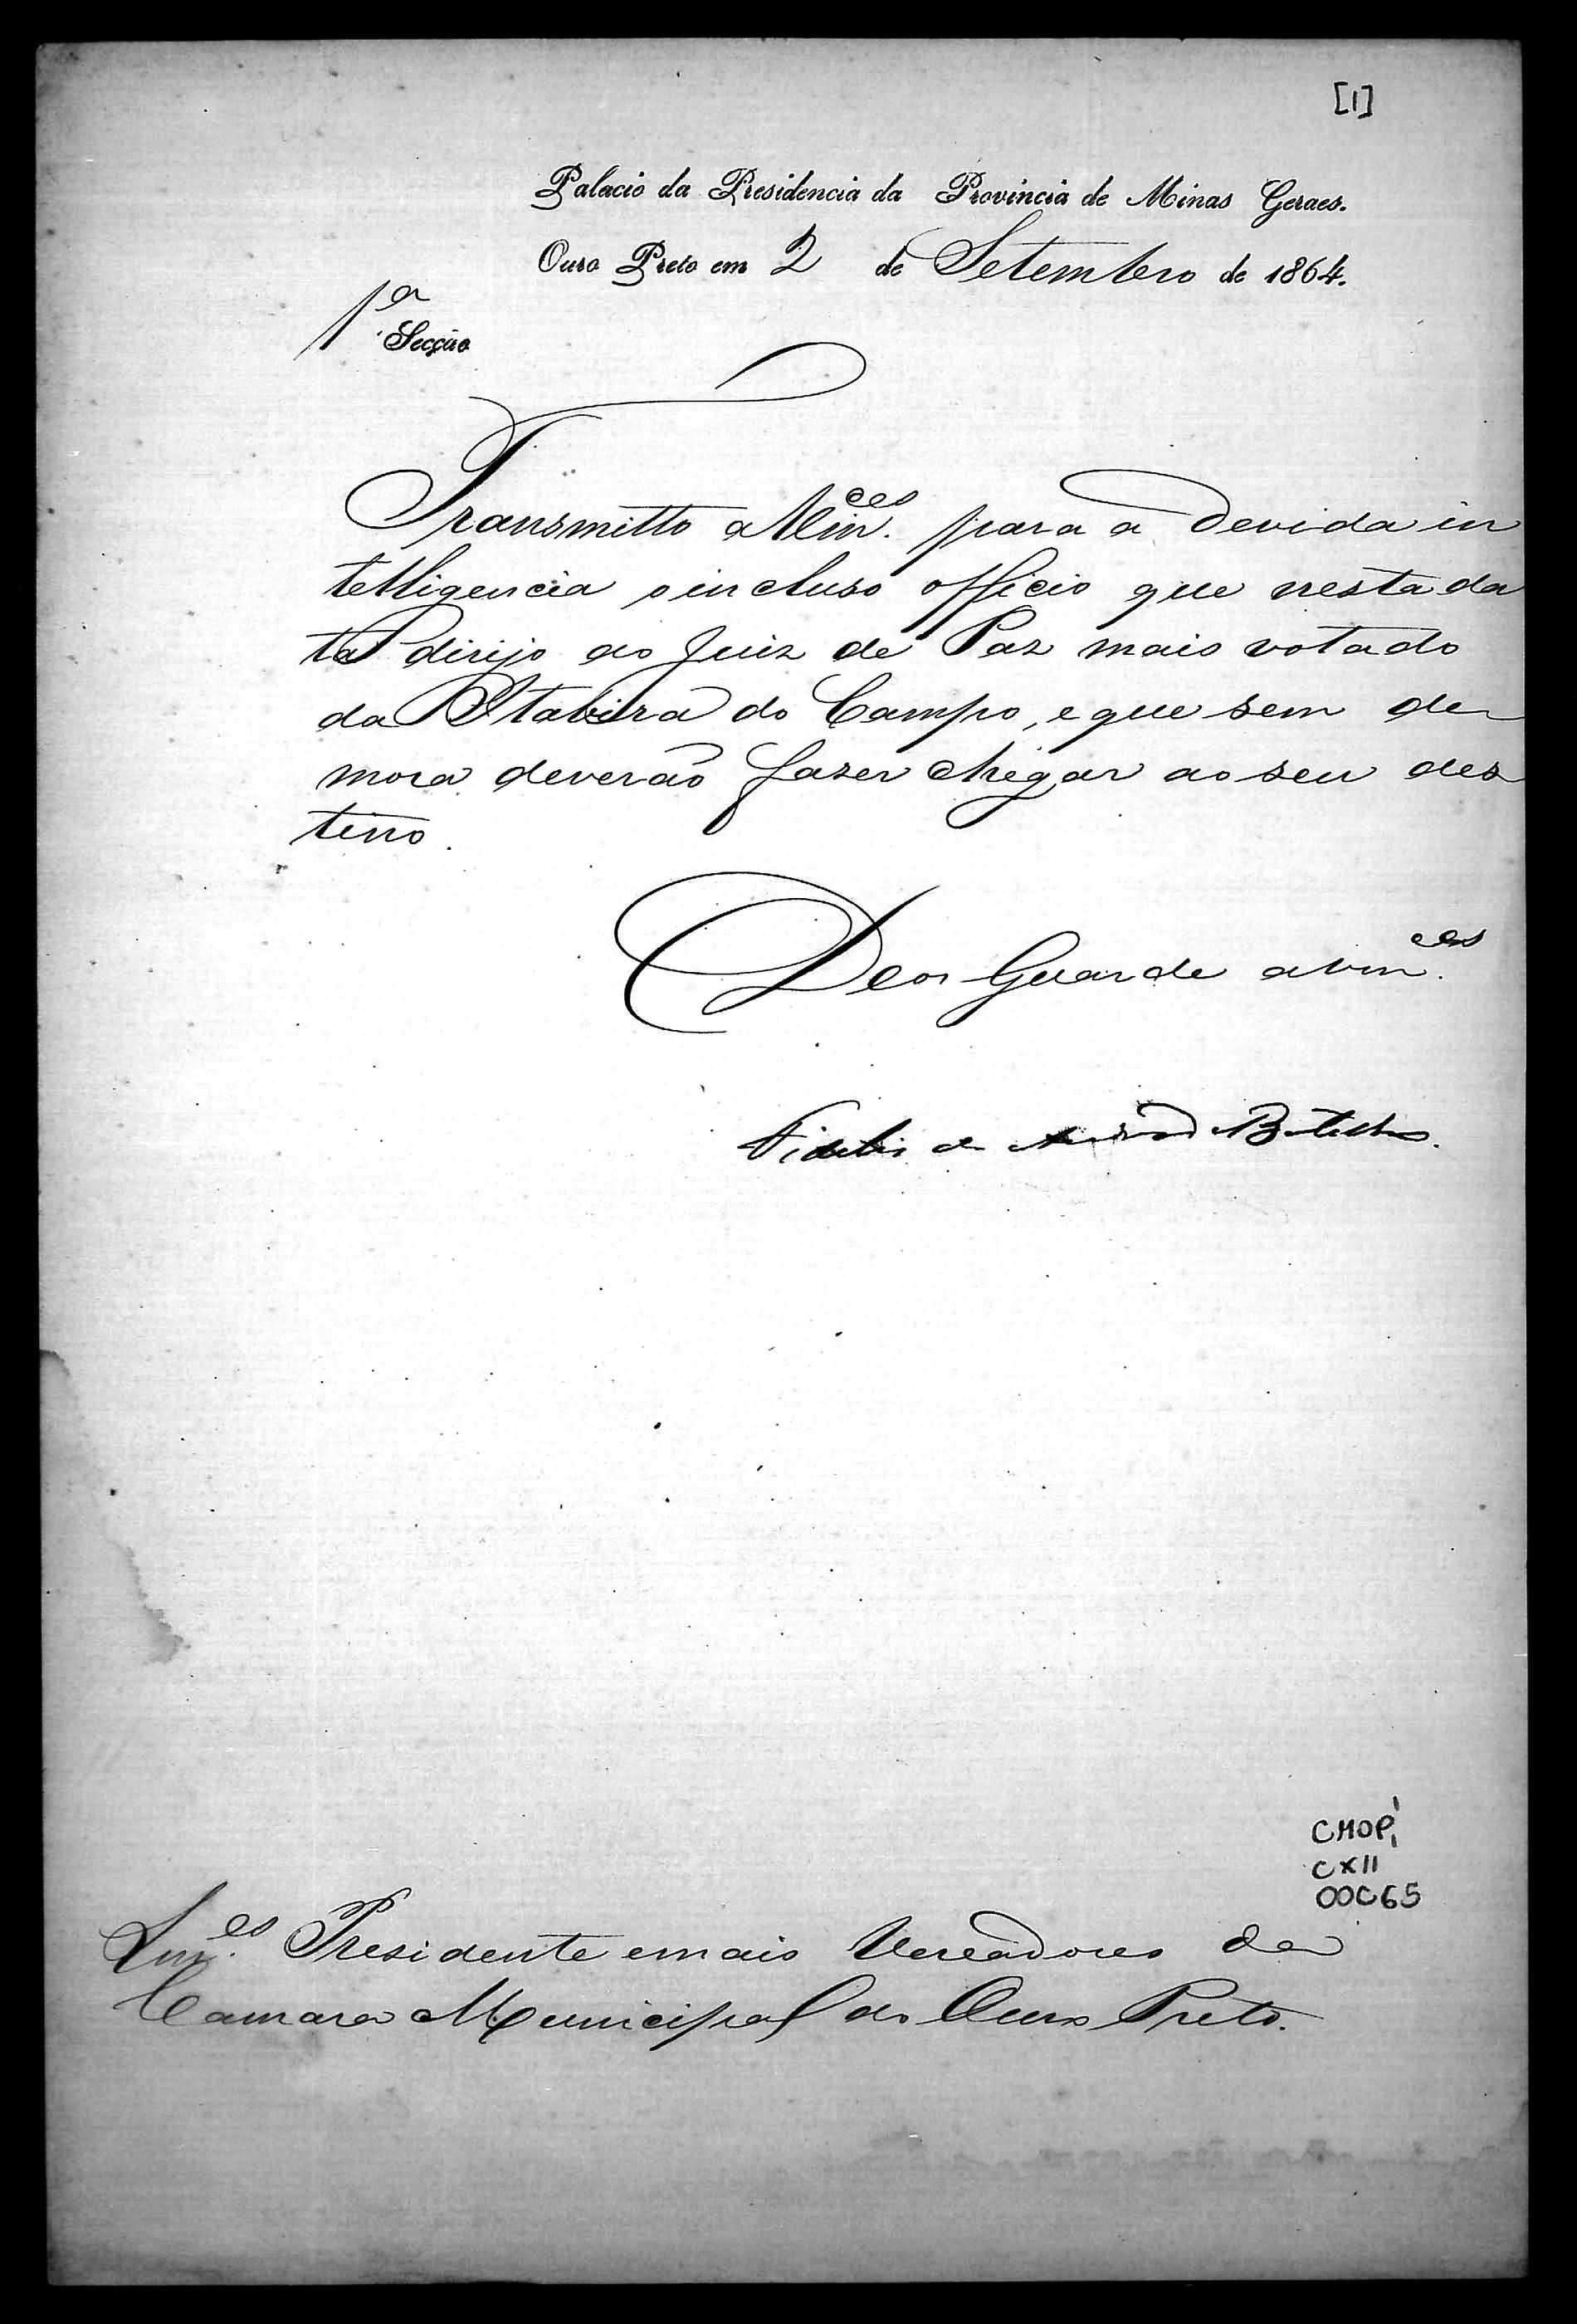 [1]
Palacio da Presidencia da Provincia de Minas Geraes.
Ouro Preto em 2 de Setembro de 1864.
1ª Secção
Transmitto a Vm.ces para a devida in
telligencia o incluso officio que nesta da
ta dirijo ao Juiz de Paz mais votado
da Itabira do Campo, e que sem de
mora deverão fazer chegar ao seu des
tino.
Deos Guarde a Vm.ces
Fidelis de Andrade Botelho.
CMOP,
CX11
DOC65
Snr.es Presidente e mais Vereadores da
Camara Municipal do Ouro Preto.